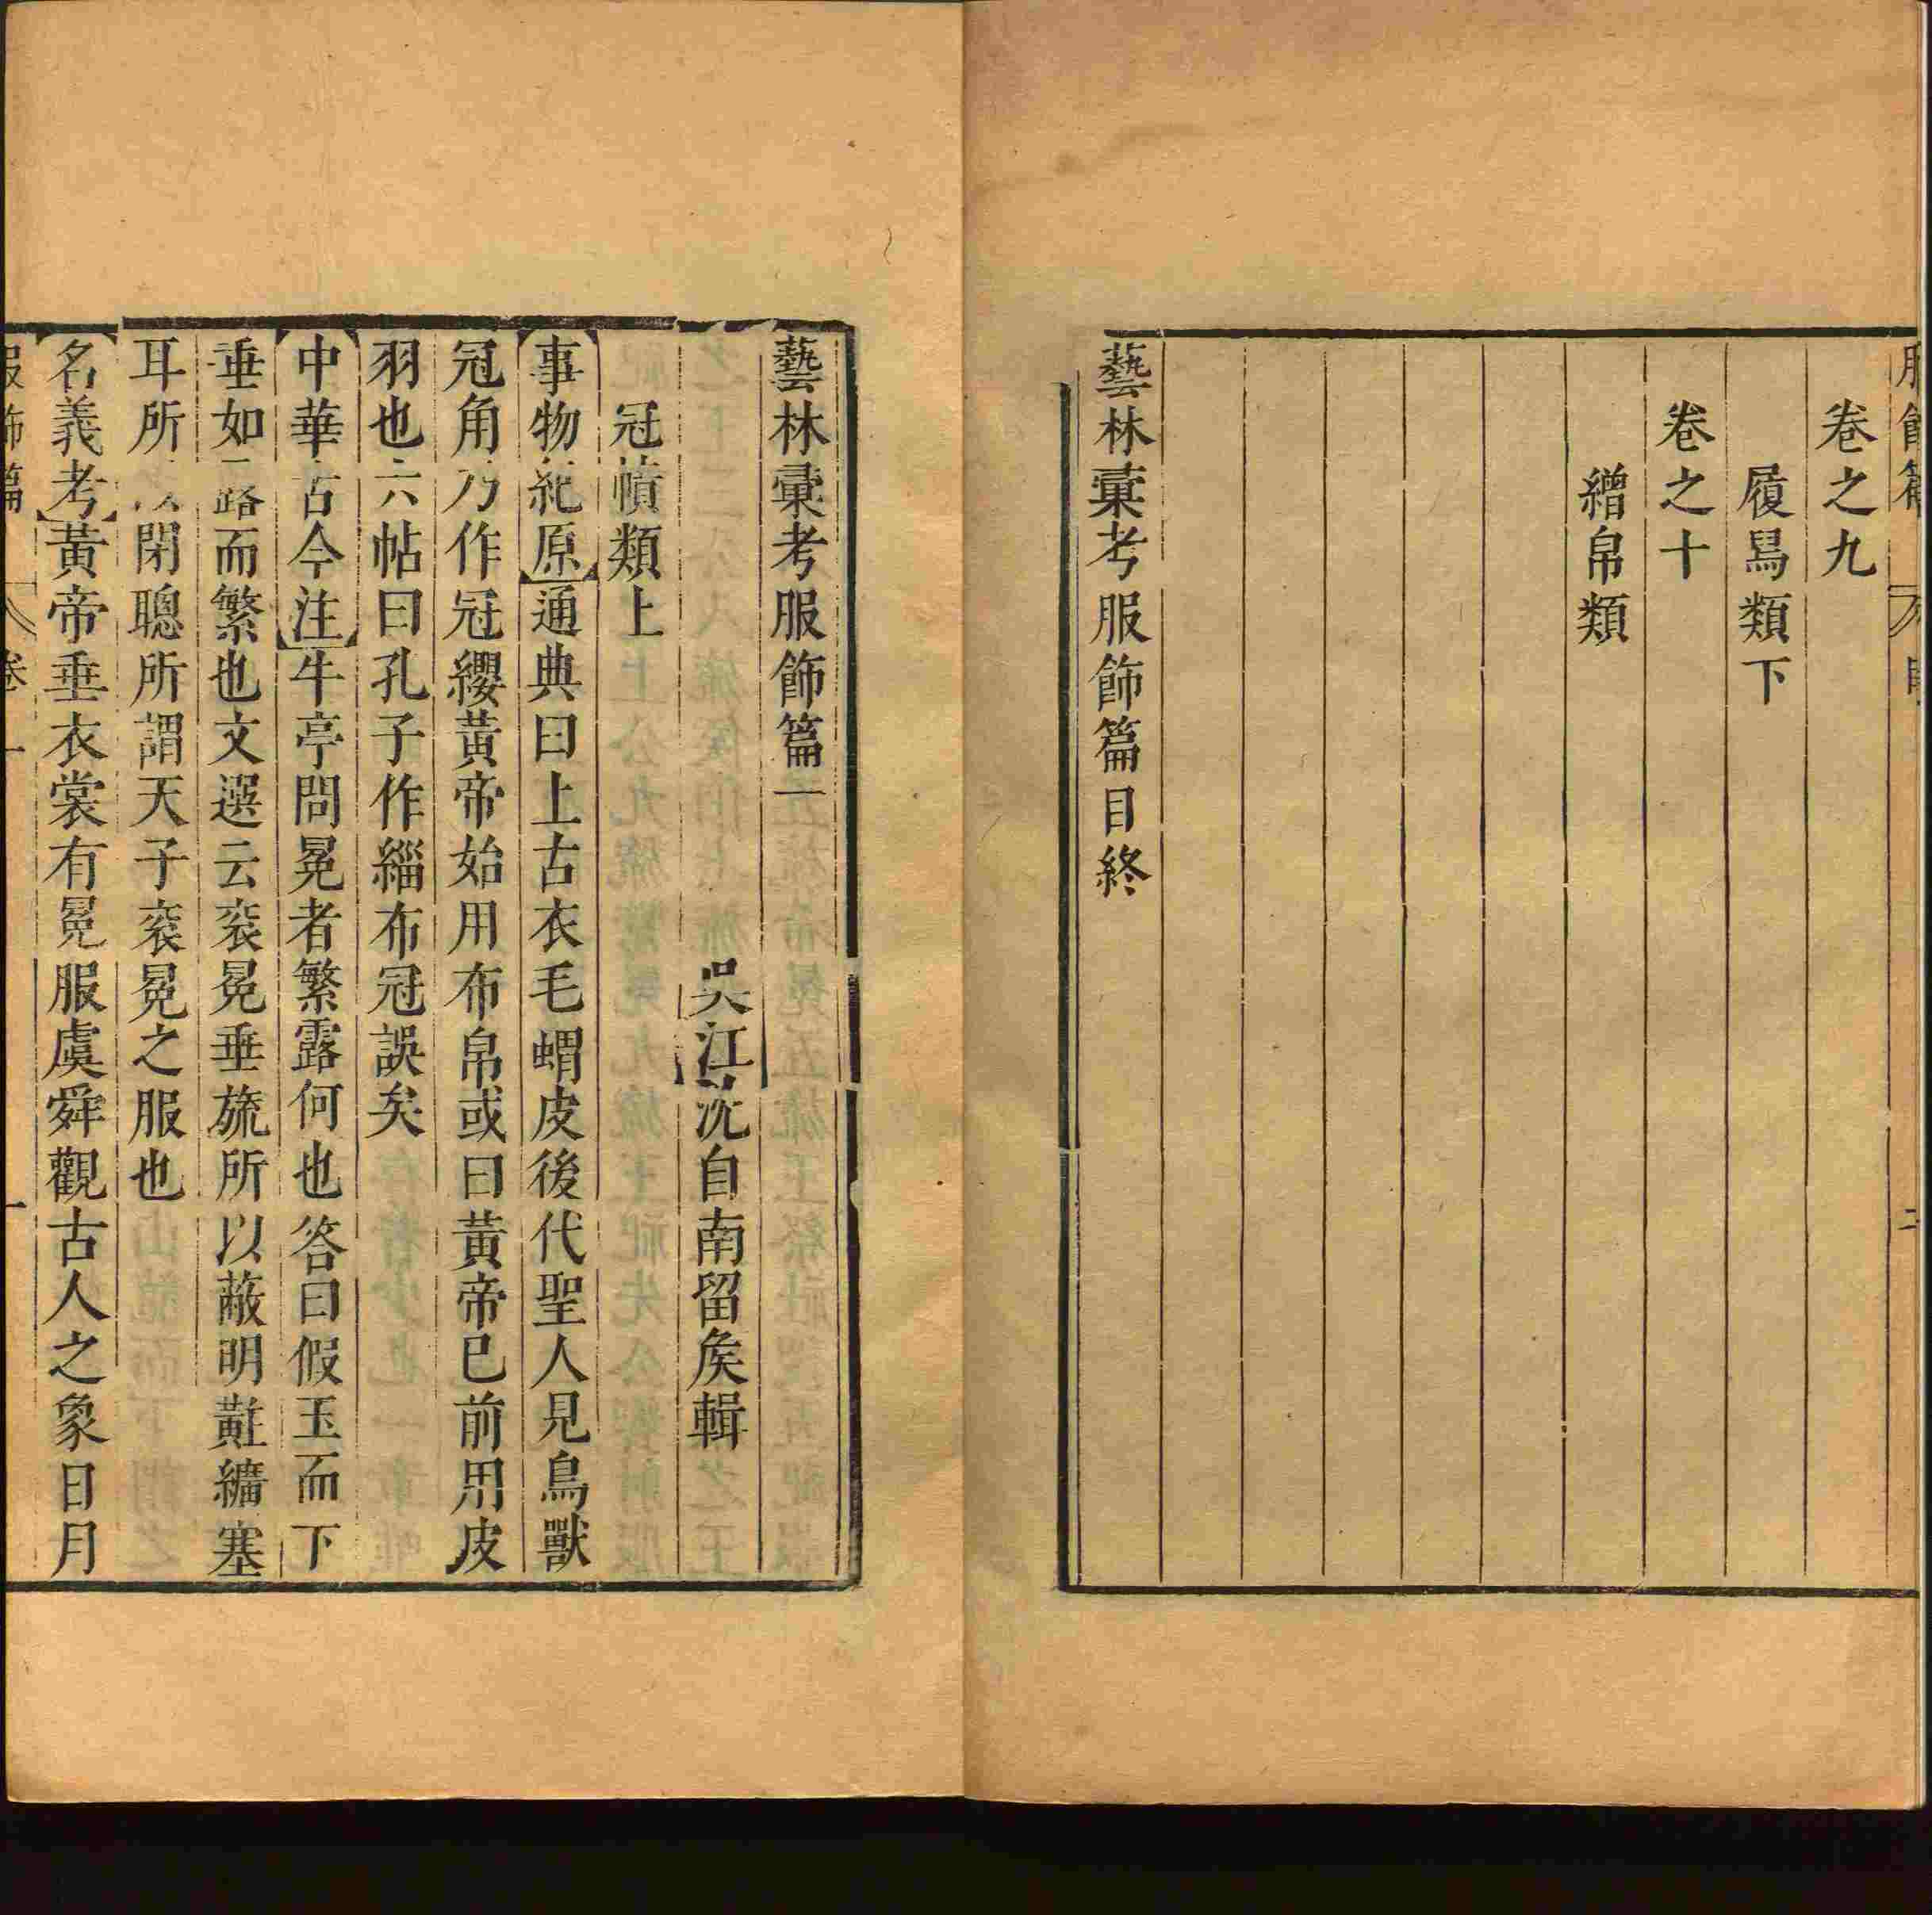 卷之九
履舄類下
卷之十
繒帛類
藝林彙考服飾篇目終
藝林彙考服飾篇一
吳江沈自南留矦輯
冠幘類上
事物紀原通典曰上古衣毛蝟皮後代聖人見鳥獸
冠角乃作冠纓黃帝始用布帛或曰黃帝已前用皮
羽也六帖曰孔子作緇布冠誤矣
中華古今注牛亭問冕者繁露何也答曰假玉而下
垂如露而繁也文選云袞冕垂旒所以蔽明黈纊塞
耳所以閉聰所謂天子袞冕之服也
名義考黃帝垂衣裳有冕服虞舜觀古人之象日月
服飾篇 卷一 一